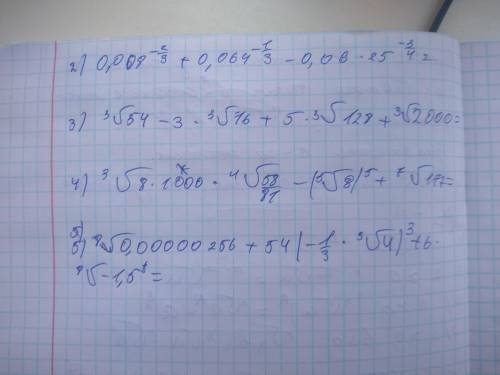 2) 0,008^(-2/3) + 0,064^(-1/3) - 0,06 · 25^(-3/4) =
3) ³√54 - 3 · ³√16 + 5 · ³√128 + ³√2000 =
4) ³√8 · 1000 · ⁴√(58/81) - (⁵√8)⁵ + ⁷√177 =
5) √0,00000256 + 54 (-1/3 · ³√4)³ + 6 ·
√-1,5 =